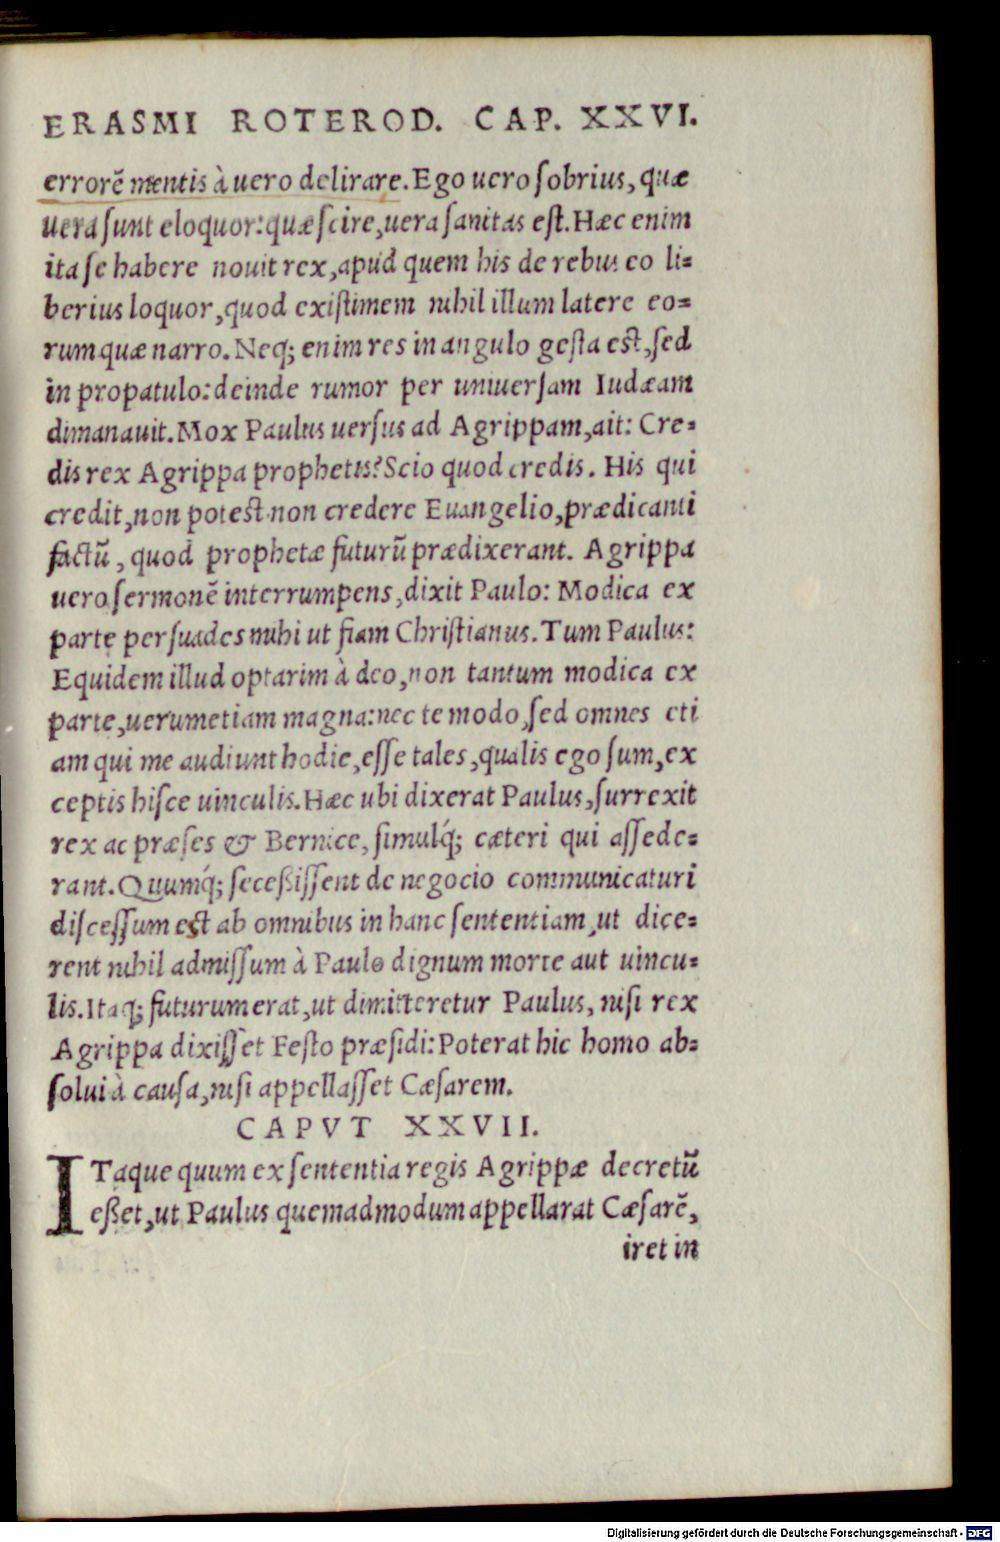 ERASMI ROTEROD. CAP. XXVI.
errorē mentis à uero delirare. Ego uero ſobrius, quæ
uera ſunt eloquor: quæ ſcire, uera ſanitas eſt. Hæc enim
ita ſe habere nouit rex, apud quem his de rebus eo li=
berius loquor, quod exiſtimem nihil illum latere eo=
rum quæ narro. Neq; enim res in angulo geſta eſt, ſed
in propatulo: deinde rumor per uniuerſam Iudæam
dimanauit. Mox Paulus uerſus ad Agrippam, ait: Cre=
dis rex Agrippa prophetis? Scio quod credis. His qui
credit, non poteſt non credere Euangelio, prædicanti
factū, quod prophetæ futurū prædixerant. Agrippa
uero ſermonē interrumpens, dixit Paulo: Modica ex
parte perſuades mihi ut fiam Chriſtianus. Tum Paulus:
Equidem illud optarim à deo, non tantum modica ex
parte, uerumetiam magna: nec te modo, ſed omnes eti
am qui me audiunt hodie, eſſe tales, qualis ego ſum, ex
ceptis hiſce uinculis. Hæc ubi dixerat Paulus, ſurrexit
rex ac præſes & Bernice, ſimulq́; cæteri qui aſſede=
rant. Quumq́; ſeceßiſſent de negocio communicaturi
diſceſſum eſt ab omnibus in hanc ſententiam, ut dice=
rent nihil admiſſum à Paulo dignum morte aut uincu=
lis. Itaq; futurum erat, ut dimitteretur Paulus, niſi rex
Agrippa dixiſſet Feſto præſidi: Poterat hic homo ab=
ſolui à cauſa, niſi appellaſſet Cæſarem.
CAPVT XXVII.
ITaque quum ex ſententia regis Agrippæ decretū
eßet, ut Paulus quemadmodum appellarat Cæſarē,
iret in
Digitalisierung gefördert durch die Deutsche Forschungsgemeinschaft - DFG